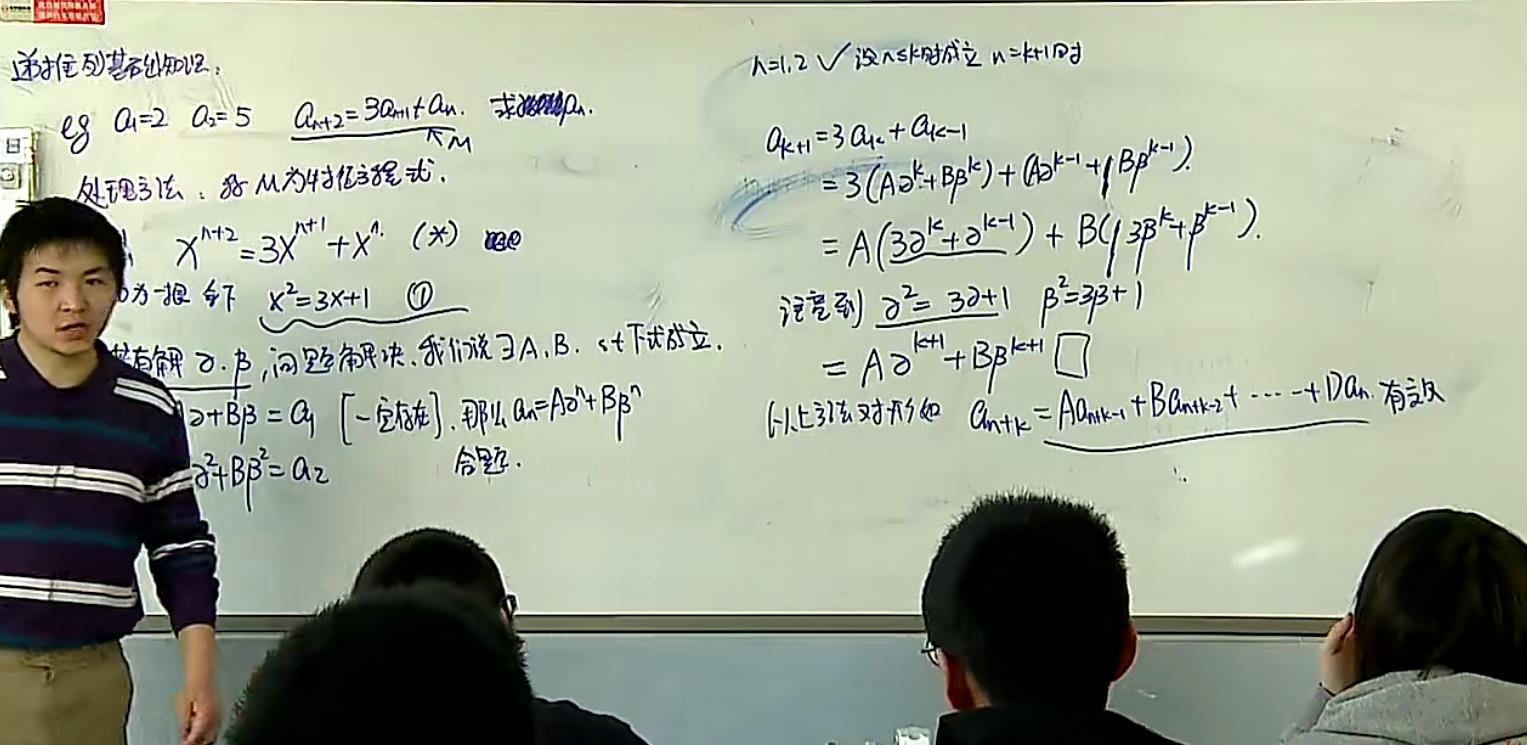 递推数列基础知识:
eg a₁=2 a₂=5 aₙ₊₂=3aₙ₊₁+aₙ. 求aₙ.
↖M
处理方法: 称M为特征方程式.
xⁿ⁺²=3xⁿ⁺¹+xⁿ. (*)
为一根 x²=3x+1 ①
有解 α.β,问题解决.我们说∃A.B. st下式成立.
α+Bβ=a₁ [一定存在].那么aₙ=Aαⁿ+Bβⁿ
α²+Bβ²=a₂ 合题.
n=1,2 ✓ 设n≤k时成立 n=k+1时
aₖ₊₁=3aₖ+aₖ₋₁
=3(Aαᵏ+Bβᵏ)+(Aαᵏ⁻¹+Bβᵏ⁻¹).
=A(3αᵏ+αᵏ⁻¹)+B(3βᵏ+βᵏ⁻¹).
注意到 α²=3α+1 β²=3β+1
=Aαᵏ⁺¹+Bβᵏ⁺¹ □
以上方法对形如 aₙ₊ₖ=Aaₙ₊ₖ₋₁+Baₙ₊ₖ₋₂+……+Daₙ.有效